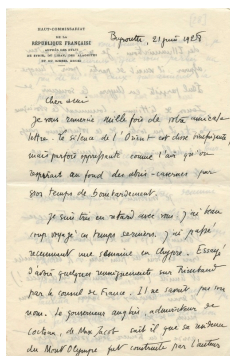 HAUT-COMMISSARIAT
DE LA
RÉPUBLIQUE FRANÇAISE
Beyrouth, 21 juin 1928
Cher ami
Je vous remercie mille fois de votre amicale
lettre. Le silence de l'Orient est chose
mais parfois oppressante comme l'air qu'on
respirait au fond des abris-cavernes par
gros temps de bombardement.
Je suis en retard avec vous. J'ai beau
coup voyagé ces temps derniers. J'ai passé
récemment une semaine en Chypre. Essayé
d'avoir quelques renseignements sur Rimbaud
par le consul de France. Il ne savait pas son
nom. Le gouverneur anglais, admirateur de
Cocteau, de Max Jacob sait-il que sa maison
du Mont Olympe fut construite par l'auteur